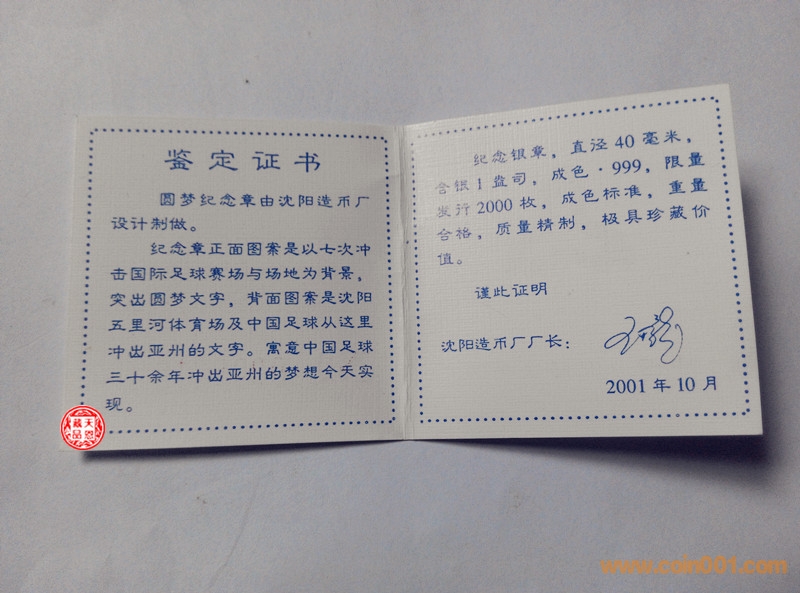 鉴定证书
圆梦纪念章由沈阳造币厂
设计制做。
纪念章正面图案是以七次冲
击国际足球赛场与场地为背景，
突出圆梦文字，背面图案是沈阳
五里河体育场及中国足球从这里
冲出亚州的文字。寓意中国足球
三十余年冲出亚州的梦想今天实
现。
纪念银章，直泾40毫米，
含银1盎司，成色·999，限量
发行2000枚，成色标准，重量
合格，质量精制，极具珍藏价
值。
谨此证明
沈阳造币厂厂长：
2001年10月
天恩藏品
www.coin001.com